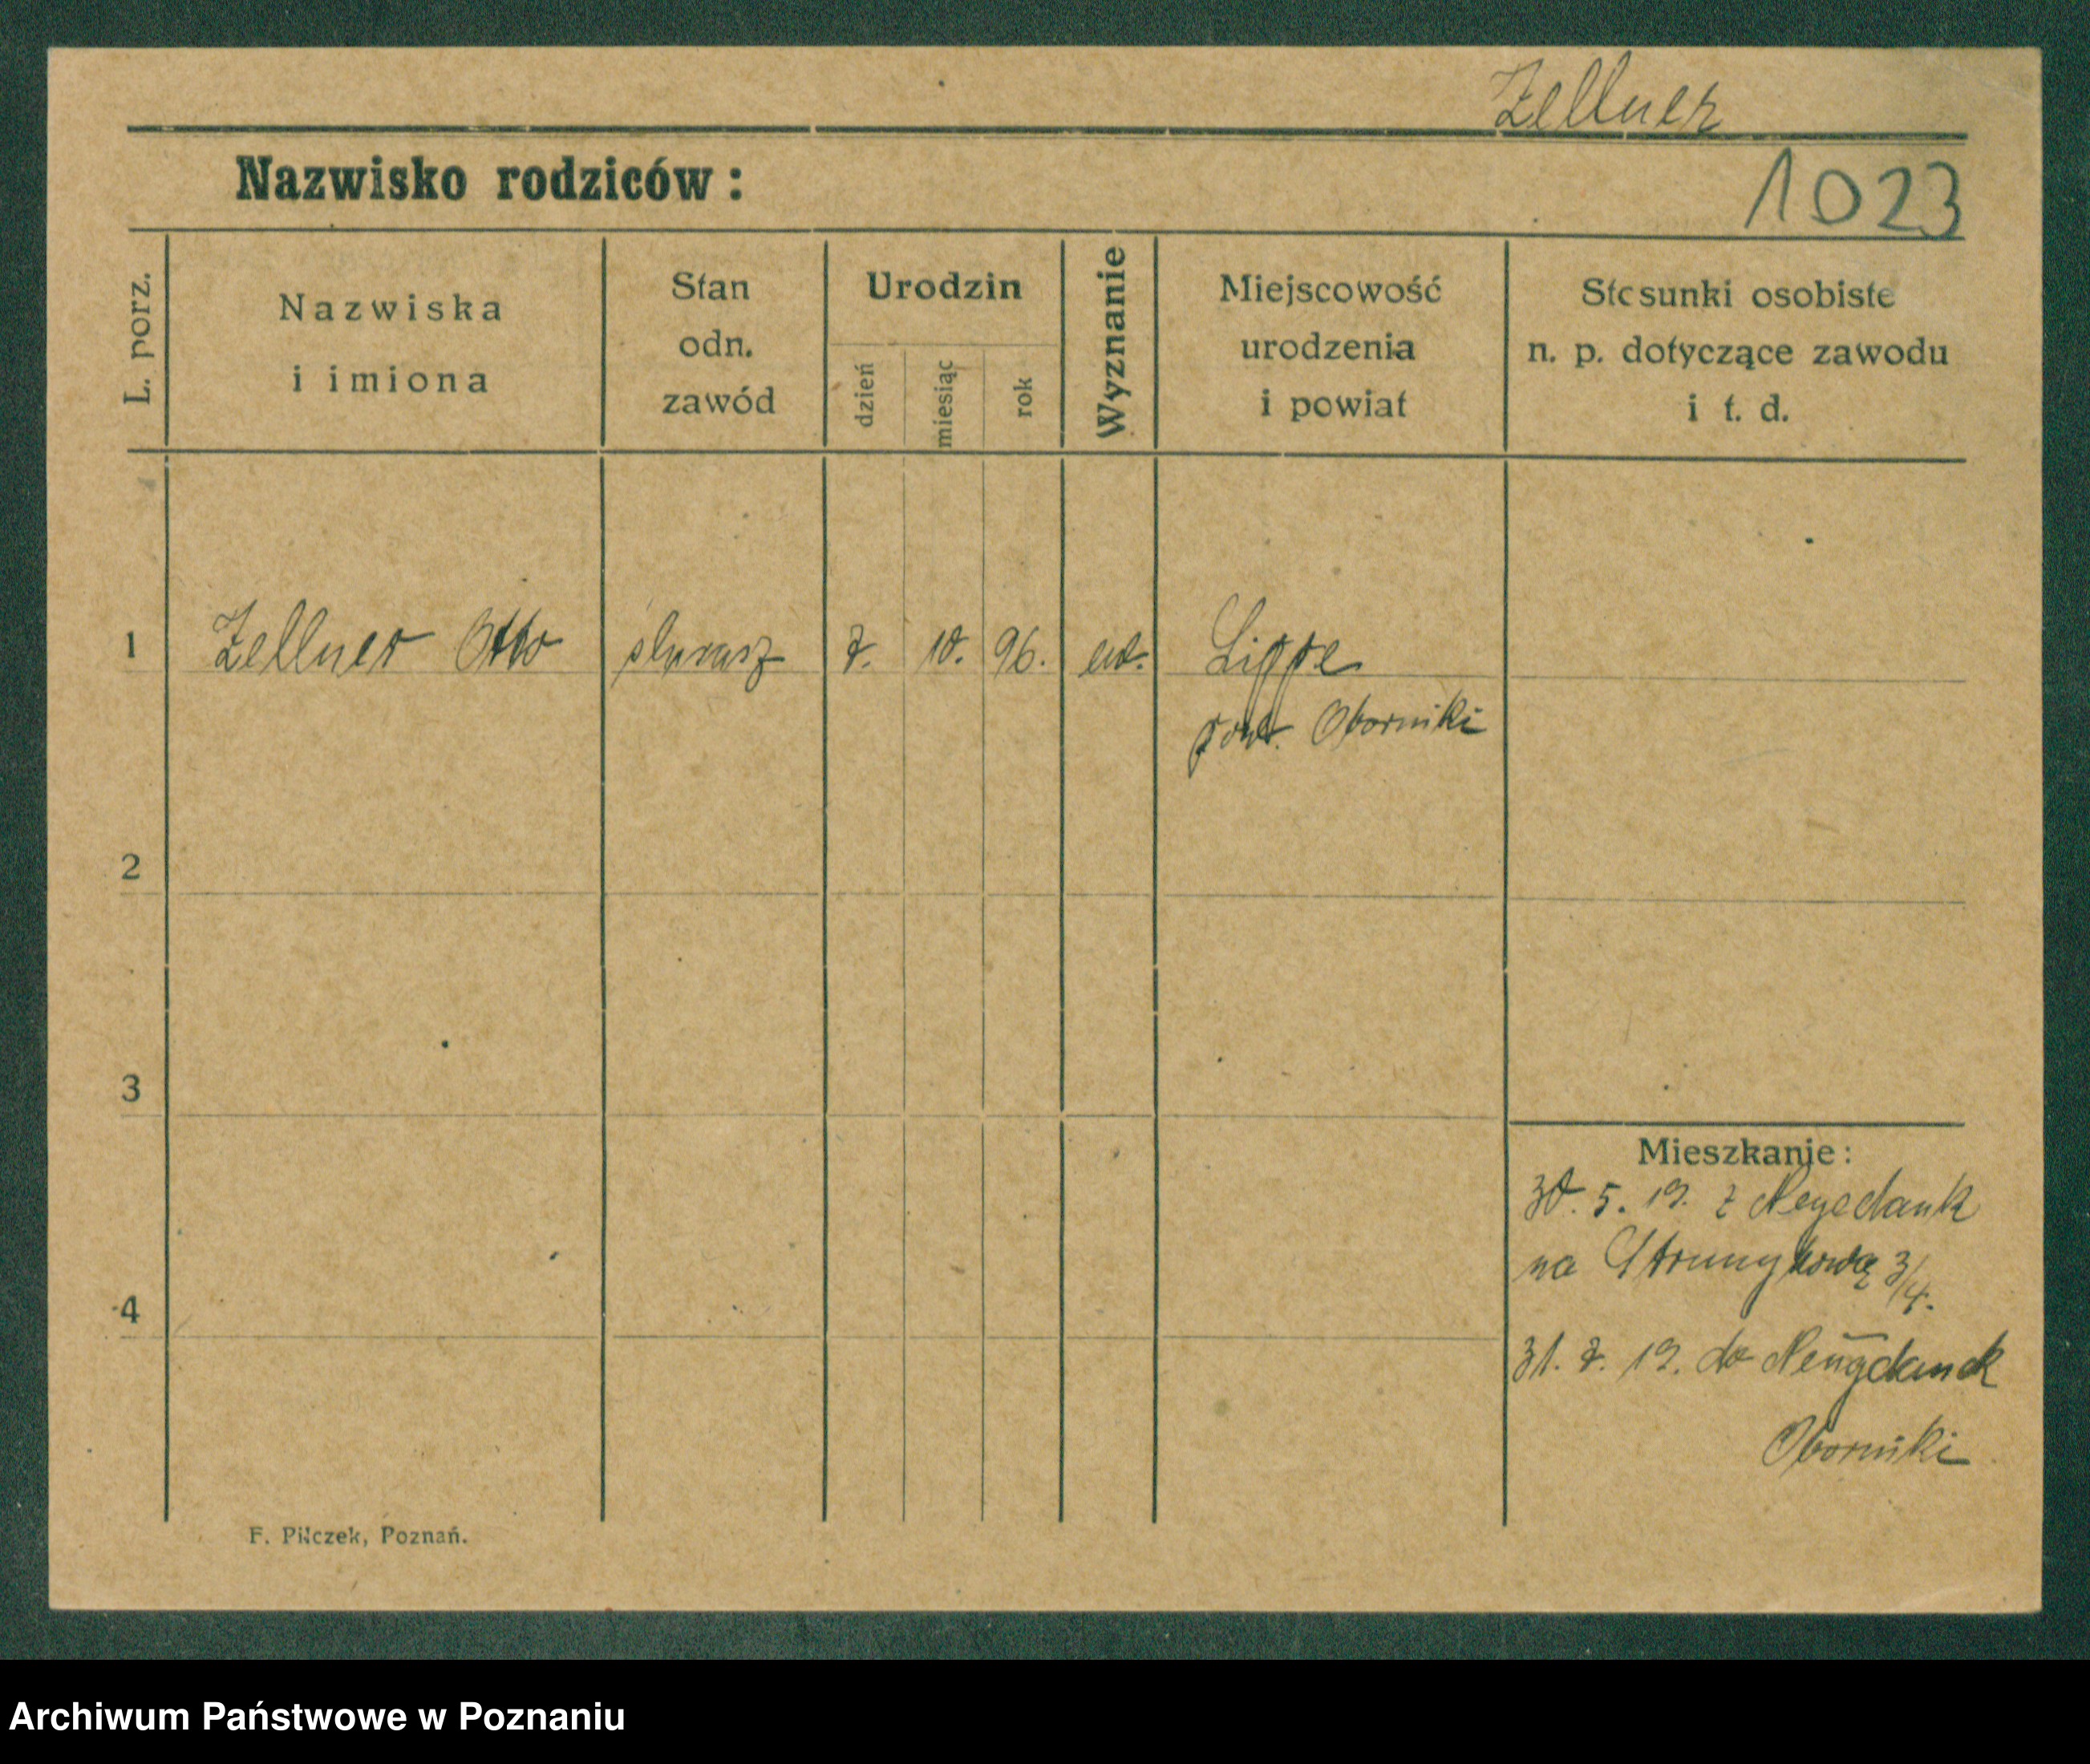 Zellner
Nazwisko rodziców:
1023
L. porz.
Nazwiska
i imiona
Stan
odn.
zawód
Urodzin
dzień
miesiąc
rok
Wyznanie
Miejscowość
urodzenia
i powiat
Stosunki osobiste
n. p. dotyczące zawodu
i t. d.
1 Zellner Otto ślusarz 7. 10. 96. ew. Lippe
pow. Oborniki
2
3
Mieszkanie:
30. 5. 19. z
na Strumykową 3/4.
4
31. 7. 19. do
Oborniki
F. Pilczek, Poznań.
Archiwum Państwowe w Poznaniu